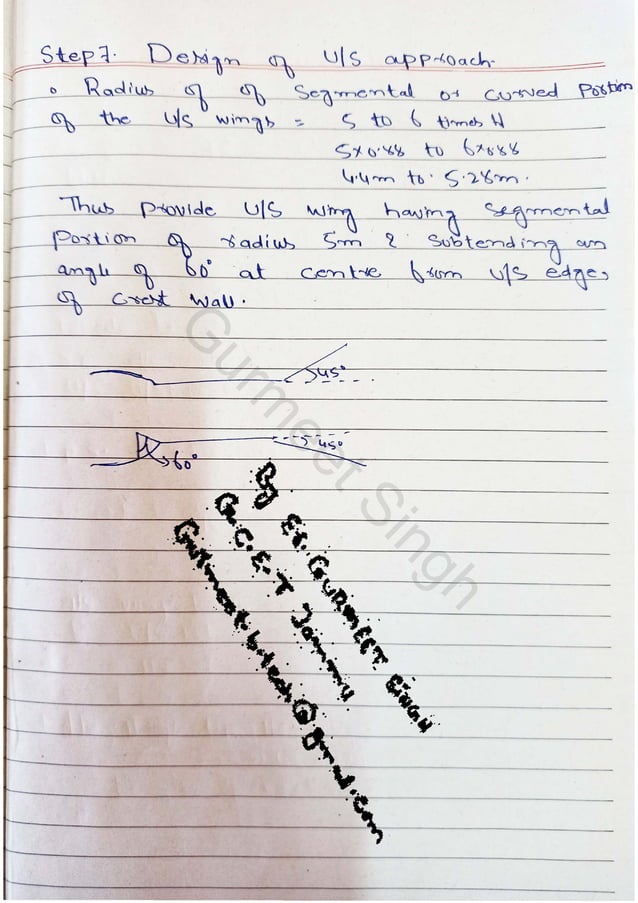 Step 7. Design of U/S approach.
• Radius of of segmental or curved portion
of the U/S wings = 5 to 6 times H
5×0.88 to 6×0.88
4.4m to 5.28m.
Thus provide U/S wing having segmental
portion of radius 5m & subtending an
angle of 60° at centre from U/S edges
of crest wall.
45°
45°
60°
Gurmeet Singh
By Er. GURMEET SINGH
G.C.E.T Jammu